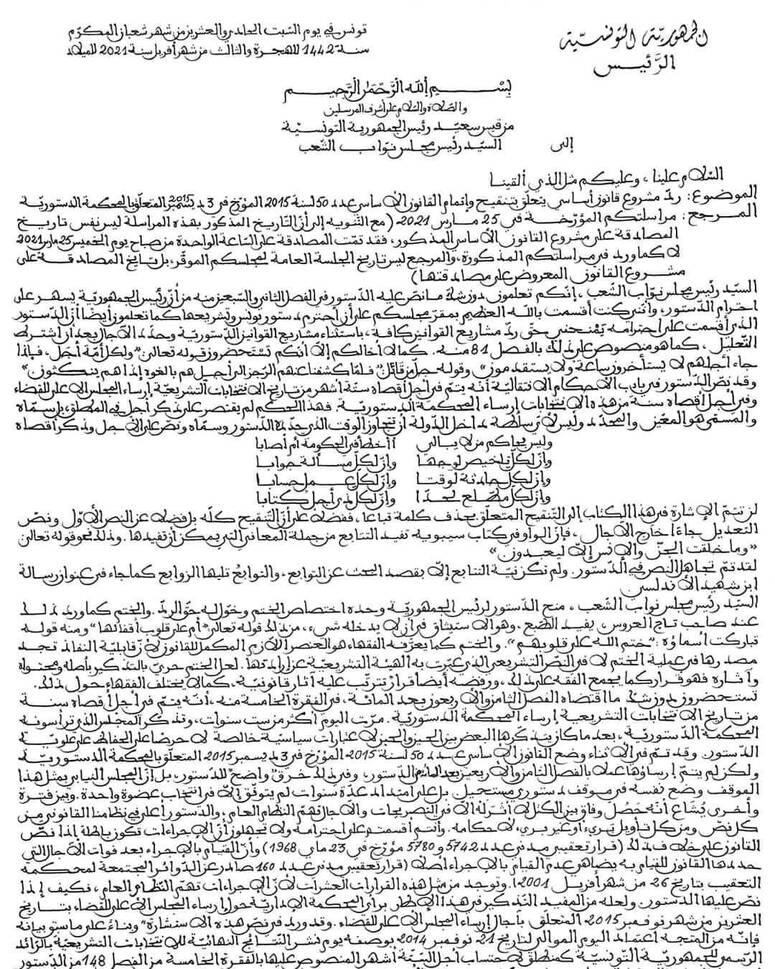 الجمهورية التونسية
الرئيس
تونس في يوم السبت الحادي والعشرين من شهر شعبان المكرّم
سنة 1442 للهجرة والثالث من شهر أفريل سنة 2021 للميلاد
بسم الله الرحمان الرحيم
والصلاة والسلام على أشرف المرسلين
من قيس سعيّد رئيس الجمهورية التونسية
إلى
السيّد رئيس مجلس نواب الشعب
السّلام علينا، وعليكم مثل الذي ألقينا
الموضوع: ردّ مشروع قانون أساسي يتعلق بتنقيح وإتمام القانون الأساسي عدد 50 لسنة 2015 المؤرّخ في 3 ديسمبر 2015 المتعلق بالمحكمة الدستورية
المرجع: مراسلتكم المؤرّخة في 25 مارس 2021 (مع التنويه إلى أنّ التاريخ المذكور بهذه المراسلة ليس نفس تاريخ
المصادقة على مشروع القانون الأساسي المذكور، فقد تمّت المصادقة على الساعة الواحدة من صباح يوم الخميس 25 مارس 2021
لا كما ورد في مراسلتكم المذكورة، والمرجع ليس تاريخ الجلسة العامة لمجلسكم الموقّر، بل تاريخ المصادقة على
مشروع القانون المعروض على مصادقتها)
السيّد رئيس مجلس نوّاب الشّعب، إنّكم تعلمون دون شكّ ما نصّ عليه الدّستور في الفصل الثاني والسّبعين منه من أنّ رئيس الجمهوريّة يسهر على
احترام الدّستور، وأنّني كنت أقسمت بالله العظيم بمقرّ مجلسكم على أن أحترم دستور تونس وتشريعها كما تعلمون أيضا أنّ الدّستور
الذي أقسمت على احترامه يمنحني حقّ ردّ مشاريع القوانين كافة، باستثناء مشاريع القوانين الدّستورية وحدّد الآجال بعد أن اشترط
التعليل، كما هو منصوص على ذلك بالفصل 81 منه. كما لا أخالكم إلا أنكم تستحضرون قوله تعالى "ولكلّ أمّة أجل، فإذا
جاء أجلهم لا يستأخرون ساعة ولا يستقدمون" وقوله جلّ من قائل "فلمّا كشفنا عنهم الرجز إلى أجل هم بالغوه إذا هم ينكثون"
وقد نصّ الدّستور في باب الأحكام الانتقالية أنه يتمّ في أجل أقصاه ستّة أشهر من تاريخ الانتخابات التشريعيّة إرساء المجلس الأعلى للقضاء
وفي أجل أقصاه سنة من هذه الانتخابات إرساء المحكمة الدستوريّة. فهذا الحكم لم يقتصر على ذكر أجل في المطلق، بل سمّاه
والمسمّى هو المعيّن والمحدّد وليس لأيّ سلطة داخل الدّولة أن تتجاوز الوقت الذي حدّده الدّستور وسمّاه ونصّ على الأجل وذكر أقصاه
وليس يحاكم من لا يبالي أأخطأ في الحكومة أم أصابا
وإنّ لكلّ تلخيص لوجها وإنّ لكلّ مسألة جوابا
وإنّ لكلّ حادثة لوقتا وإنّ لكلّ ذي عمل حسابا
وإنّ لكلّ مطّلع لحدّا وإنّ لكلّ ذي أجل كتابا
لن تتمّ الإشارة في هذا الكتاب إلى التنقيح المتعلّق بحذف كلمة تباعا، ففضلا على أنّ التنقيح كلّه بل فضلا عن النص الأوّل ونصّ
التعديل جاءا خارج الآجال، فإنّ الواو في كتاب سيبويه تفيد التتابع من جملة المعاني التي يمكن أن تفيدها. وذلك نحو قوله تعالى
"وما خلقت الجنّ والإنس إلا ليعبدون"
لقد تمّ تجاهل النصّ في الدّستور. ولم تكن نيّة التتابع إلا بقصد البحث عن التوابع، والتوابع تليها الزوابع كما جاء في عنوان رسالة
ابن شهيد الأندلسي
السيّد رئيس مجلس نواب الشعب، منح الدّستور لرئيس الجمهوريّة وحده اختصاص الختم وخوّل له حقّ الردّ. والختم كما ورد ذلك
عند صاحب تاج العروس، يفيد الطّبع، وهو الاستيثاق من أن لا يدخله شيء، من ذلك قوله تعالى "أم على قلوب أقفالها" ومنه قوله
تباركت أسماؤه: "ختم الله على قلوبهم". والختم كما يعرّفه الفقهاء هو العنصر اللازم المكمل للقانون لأن قابليّة النفاذ تجد
مصدرها في عملية الختم لا في النصّ التشريعي الذي عبّرت به الهيئة التشريعيّة عن إرادتها. لعلّ الختم حريّ بالتذكير بأصله ومحتواه
وآثاره فهو قرار كما يجمع الفقه على ذلك، ورفضه أيضا قرار تترتّب عليه آثار قانونيّة، كما لا يختلف الفقهاء حول ذلك.
تستحضرون دون شكّ ما اقتضاه الفصل الثامن والأربعون بعد المائة، في الفقرة الخامسة منه، أنه يتمّ في أجل أقصاه سنة
من تاريخ الانتخابات التشريعيّة إرساء المحكمة الدستوريّة. مرّت اليوم أكثر من ستّ سنوات، وتذكّر المجلس الذي ترأسونه
المحكمة الدستوريّة، بعد ما كان يتذكّرها البعض بين الحين والحين لاعتبارات سياسيّة خالصة لا حرصا على الحفاظ على علويّة
الدّستور. وقد تمّ في الأثناء وضع القانون الأساسي عدد 50 لسنة 2015 المؤرّخ في 3 ديسمبر 2015 المتعلّق بالمحكمة الدّستوريّة
ولكن لم يتمّ إرساؤها عملا بالفصل الثامن والأربعين بعد المائة من الدّستور، وفي ذلك خرق واضح للدّستور، بل إنّ المجلس النيابي بمثل هذا
الموقف وضع نفسه في موقف دستوري مستحيل بل على امتداد عدّة سنوات لم يتوفّق إلا في انتخاب عضوة واحدة. وبين فترة
وأخرى يُشاع أنّه حصل وفاق بين الكتل لا أثر له إلا في التصريحات والآجال تهمّ النظام العام، والدّستور أعلى في نظامنا القانوني من
كلّ نصّ ومن كلّ تأويل بريء أو غير بريء لأحكامه. وأنتم أقسمتم على احترامه ولا تجهلون أنّ الإجراءات تكون باطلة إذا نصّ
القانون على خلاف ذلك (قرار تعقيبي مدني عدد 5742 و 5780 مؤرّخ في 23 ماي 1968) وأنّ القيام بالإجراء بعد فوات الآجال التي
حدّدها القانون للقيام به يضاهي عدم القيام بالإجراء أصلا (قرار تعقيبي مدني عدد 160 صادر عن الدّوائر المجتمعة لمحكمة
التعقيب بتاريخ 26 من شهر أفريل 2001). وتوجد من مثل هذه القرارات العشرات لأنّ الإجراءات تهمّ النظام العام، فكيف إذا
نصّ عليها الدّستور. ولعله من المفيد التذكير في هذا الإطار برأي المحكمة الإداريّة حول إرساء المجلس الأعلى للقضاء بتاريخ
العشرين من شهر نوفمبر 2015 المتعلق بآجال إرساء المجلس الأعلى للقضاء. وقد ورد في نصّ هذه الاستشارة "وبناء على ما سبق بيانه
فإنّه من المتّجه اعتماد اليوم الموالي لتاريخ 21 نوفمبر 2014 بوصفه يوم نشر النتائج النهائيّة للانتخابات التشريعيّة بالرائد
الرسمي للجمهوريّة التونسيّة كمنطلق في حساب أجل الستّة أشهر المنصوص عليها بالفقرة الخامسة من الفصل 148 من الدّستور